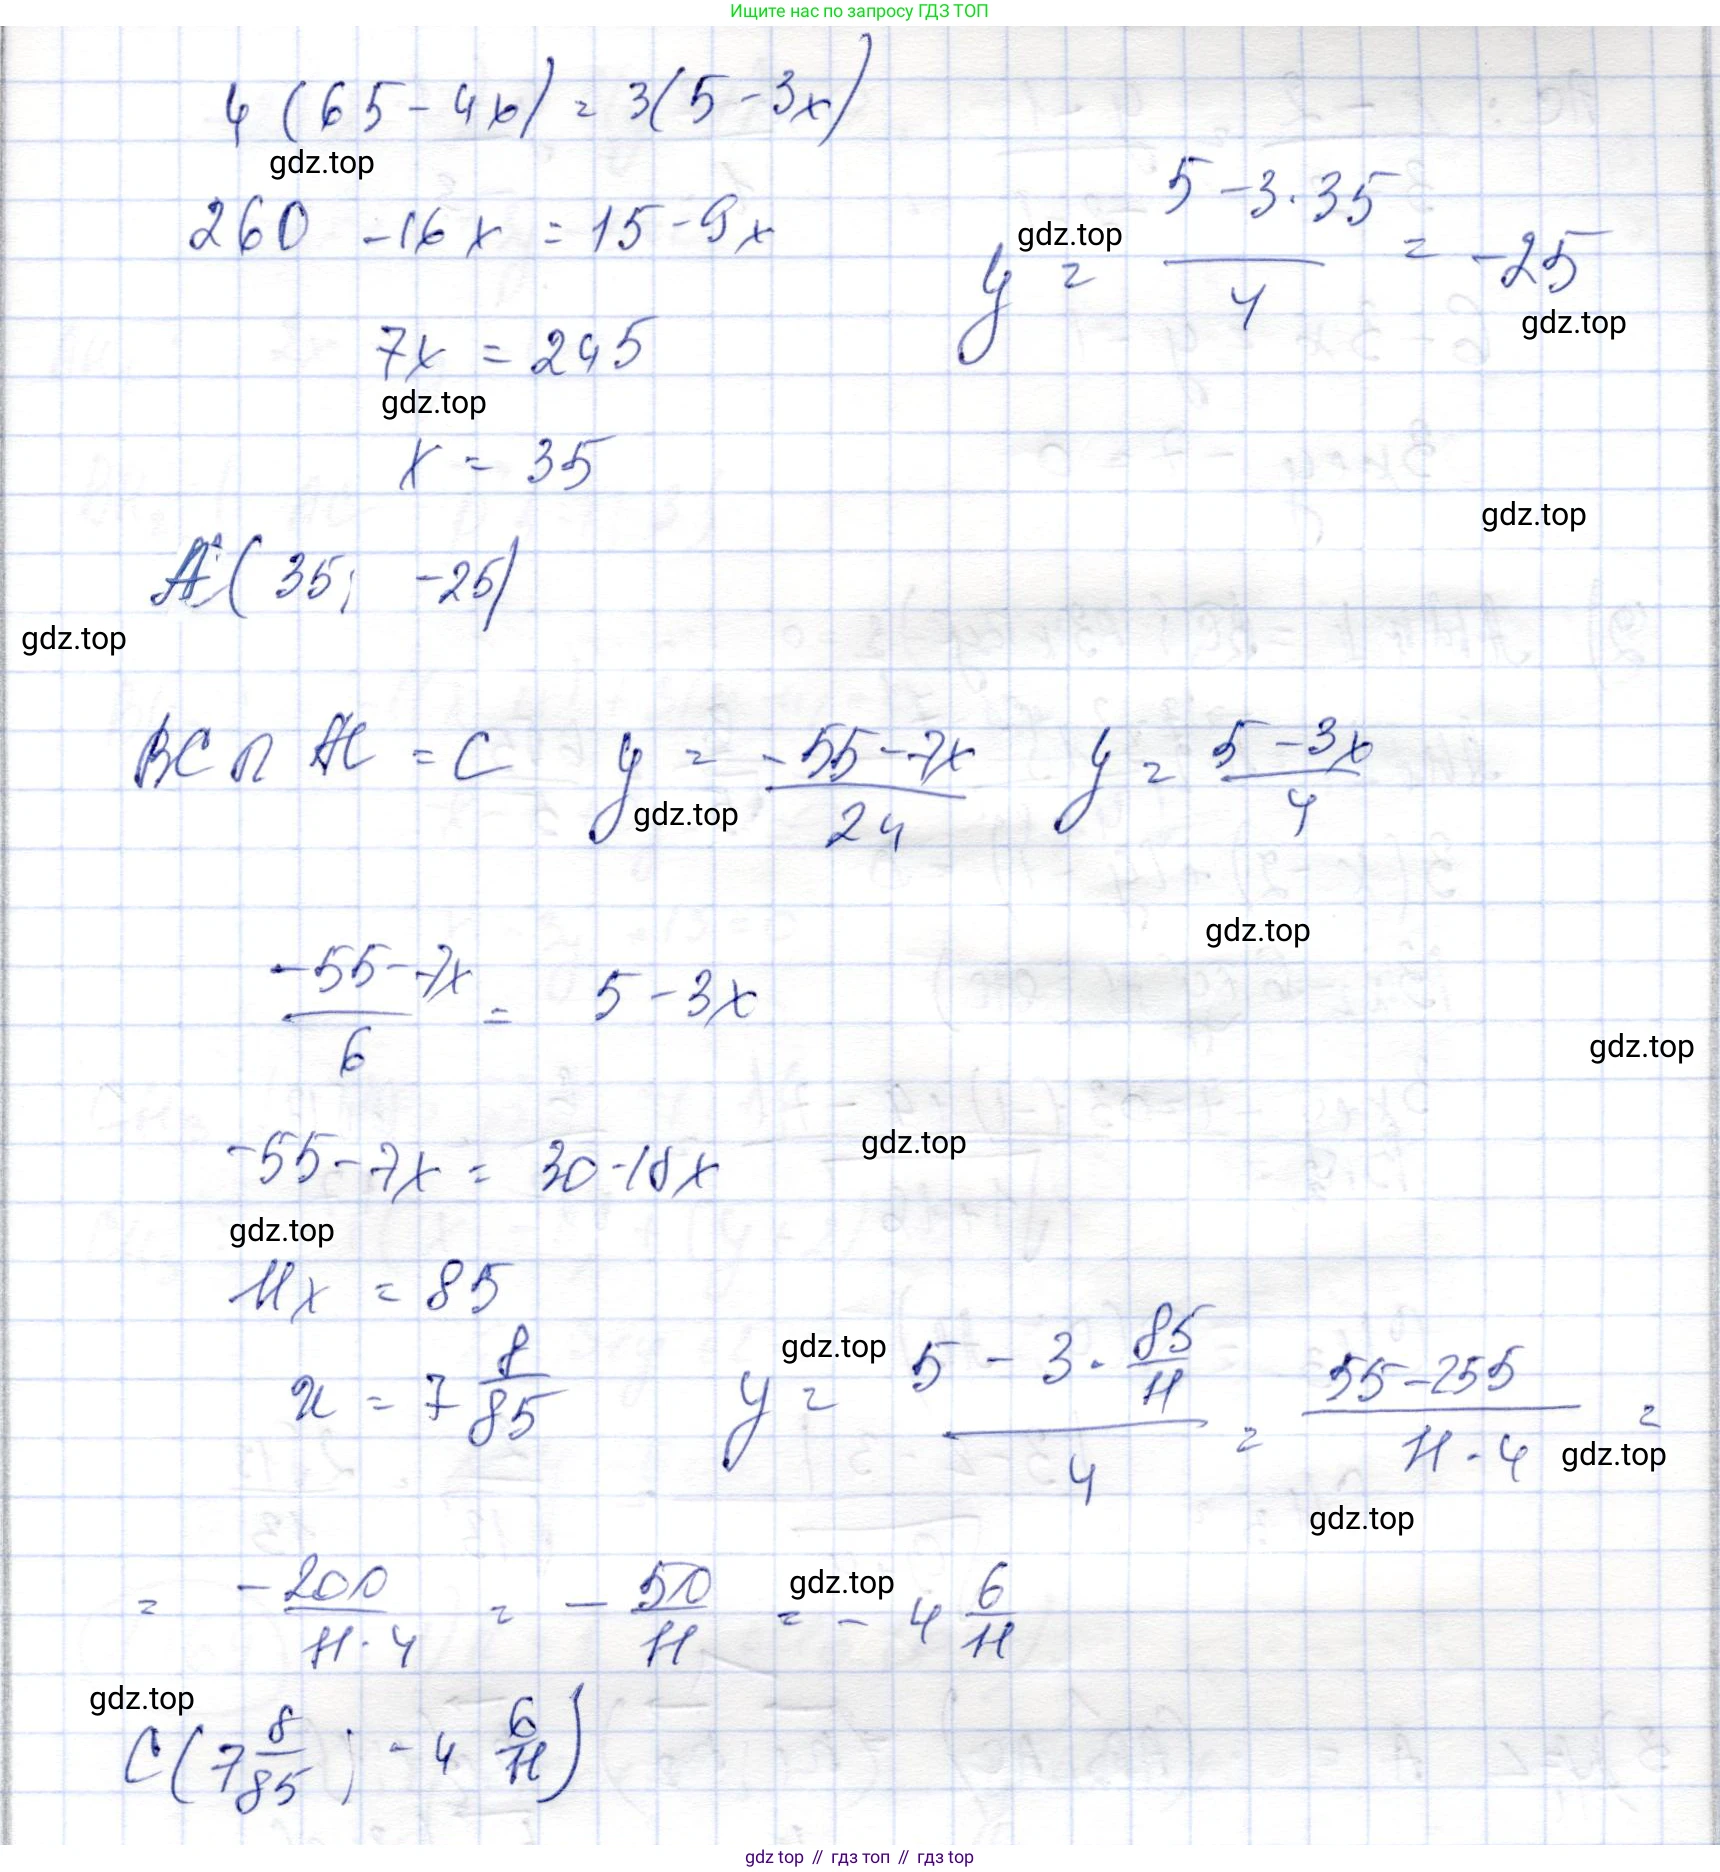 Ищите нас по запросу ГДЗ ТОП
4 (65 - 4x) = 3(5 - 3x)
gdz.top
260 - 16x = 15 - 9x
gdz.top
y = (5 - 3·35)/4 = -25
gdz.top
7x = 245
gdz.top
x = 35
gdz.top
A (35; -25)
gdz.top
BC ∩ AC = C y = (-55 - 7x)/24 y = (5 - 3x)/4
gdz.top
gdz.top
(-55 - 7x)/6 = 5 - 3x
gdz.top
-55 - 7x = 30 - 18x
gdz.top
gdz.top
11x = 85
gdz.top
x = 7 8/85 y = (5 - 3·85/11)/4 = (55 - 255)/(11·4) =
gdz.top
gdz.top
= -200/(11·4) = -50/11 = -4 6/11
gdz.top
gdz.top
C (7 8/85; -4 6/11)
gdz.top // гдз топ // гдз top